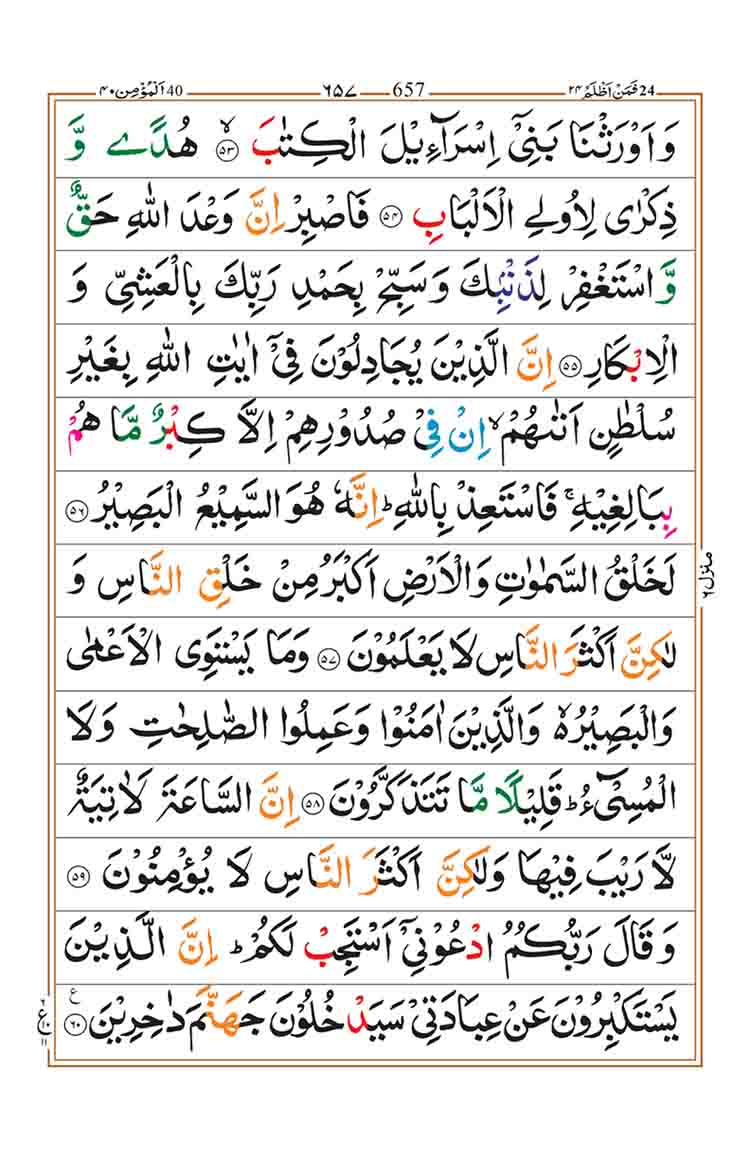 24 فَمَنْ اَظْلَمُ ٢٤ 657 ٦٥٧ 40 اَلْمُؤْمِن ٤٠
وَ اَوْرَثْنَا بَنِیْۤ اِسْرَآءِیْلَ الْكِتٰبَ ۙ﴿۵۳﴾ هُدًی وَّ
ذِكْرٰی لِاُولِی الْاَلْبَابِ ﴿۵۴﴾ فَاصْبِرْ اِنَّ وَعْدَ اللّٰهِ حَقٌّ
وَّ اسْتَغْفِرْ لِذَنْۢبِكَ وَ سَبِّحْ بِحَمْدِ رَبِّكَ بِالْعَشِیِّ وَ
الْاِبْكَارِ ﴿۵۵﴾ اِنَّ الَّذِیْنَ یُجَادِلُوْنَ فِیْۤ اٰیٰتِ اللّٰهِ بِغَیْرِ
سُلْطٰنٍ اَتٰىهُمْ ۙ اِنْ فِیْ صُدُوْرِهِمْ اِلَّا كِبْرٌ مَّا هُمْ
بِبَالِغِیْهِ ۚ فَاسْتَعِذْ بِاللّٰهِ ؕ اِنَّهٗ هُوَ السَّمِیْعُ الْبَصِیْرُ ﴿۵۶﴾
لَخَلْقُ السَّمٰوٰتِ وَ الْاَرْضِ اَكْبَرُ مِنْ خَلْقِ النَّاسِ وَ
لٰكِنَّ اَكْثَرَ النَّاسِ لَا یَعْلَمُوْنَ ﴿۵۷﴾ وَمَا یَسْتَوِی الْاَعْمٰی
وَالْبَصِیْرُ ۙ۬ وَالَّذِیْنَ اٰمَنُوْا وَعَمِلُوا الصّٰلِحٰتِ وَلَا
الْمُسِیْٓءُ ؕ قَلِیْلًا مَّا تَتَذَكَّرُوْنَ ﴿۵۸﴾ اِنَّ السَّاعَةَ لَاٰتِیَةٌ
لَّا رَیْبَ فِیْهَا وَلٰكِنَّ اَكْثَرَ النَّاسِ لَا یُؤْمِنُوْنَ ﴿۵۹﴾
وَ قَالَ رَبُّكُمُ ادْعُوْنِیْۤ اَسْتَجِبْ لَكُمْ ؕ اِنَّ الَّذِیْنَ
یَسْتَكْبِرُوْنَ عَنْ عِبَادَتِیْ سَیَدْخُلُوْنَ جَهَنَّمَ دٰخِرِیْنَ ﴿۶۰﴾ ع
منزل ٦
٦
ع ١٠
١١